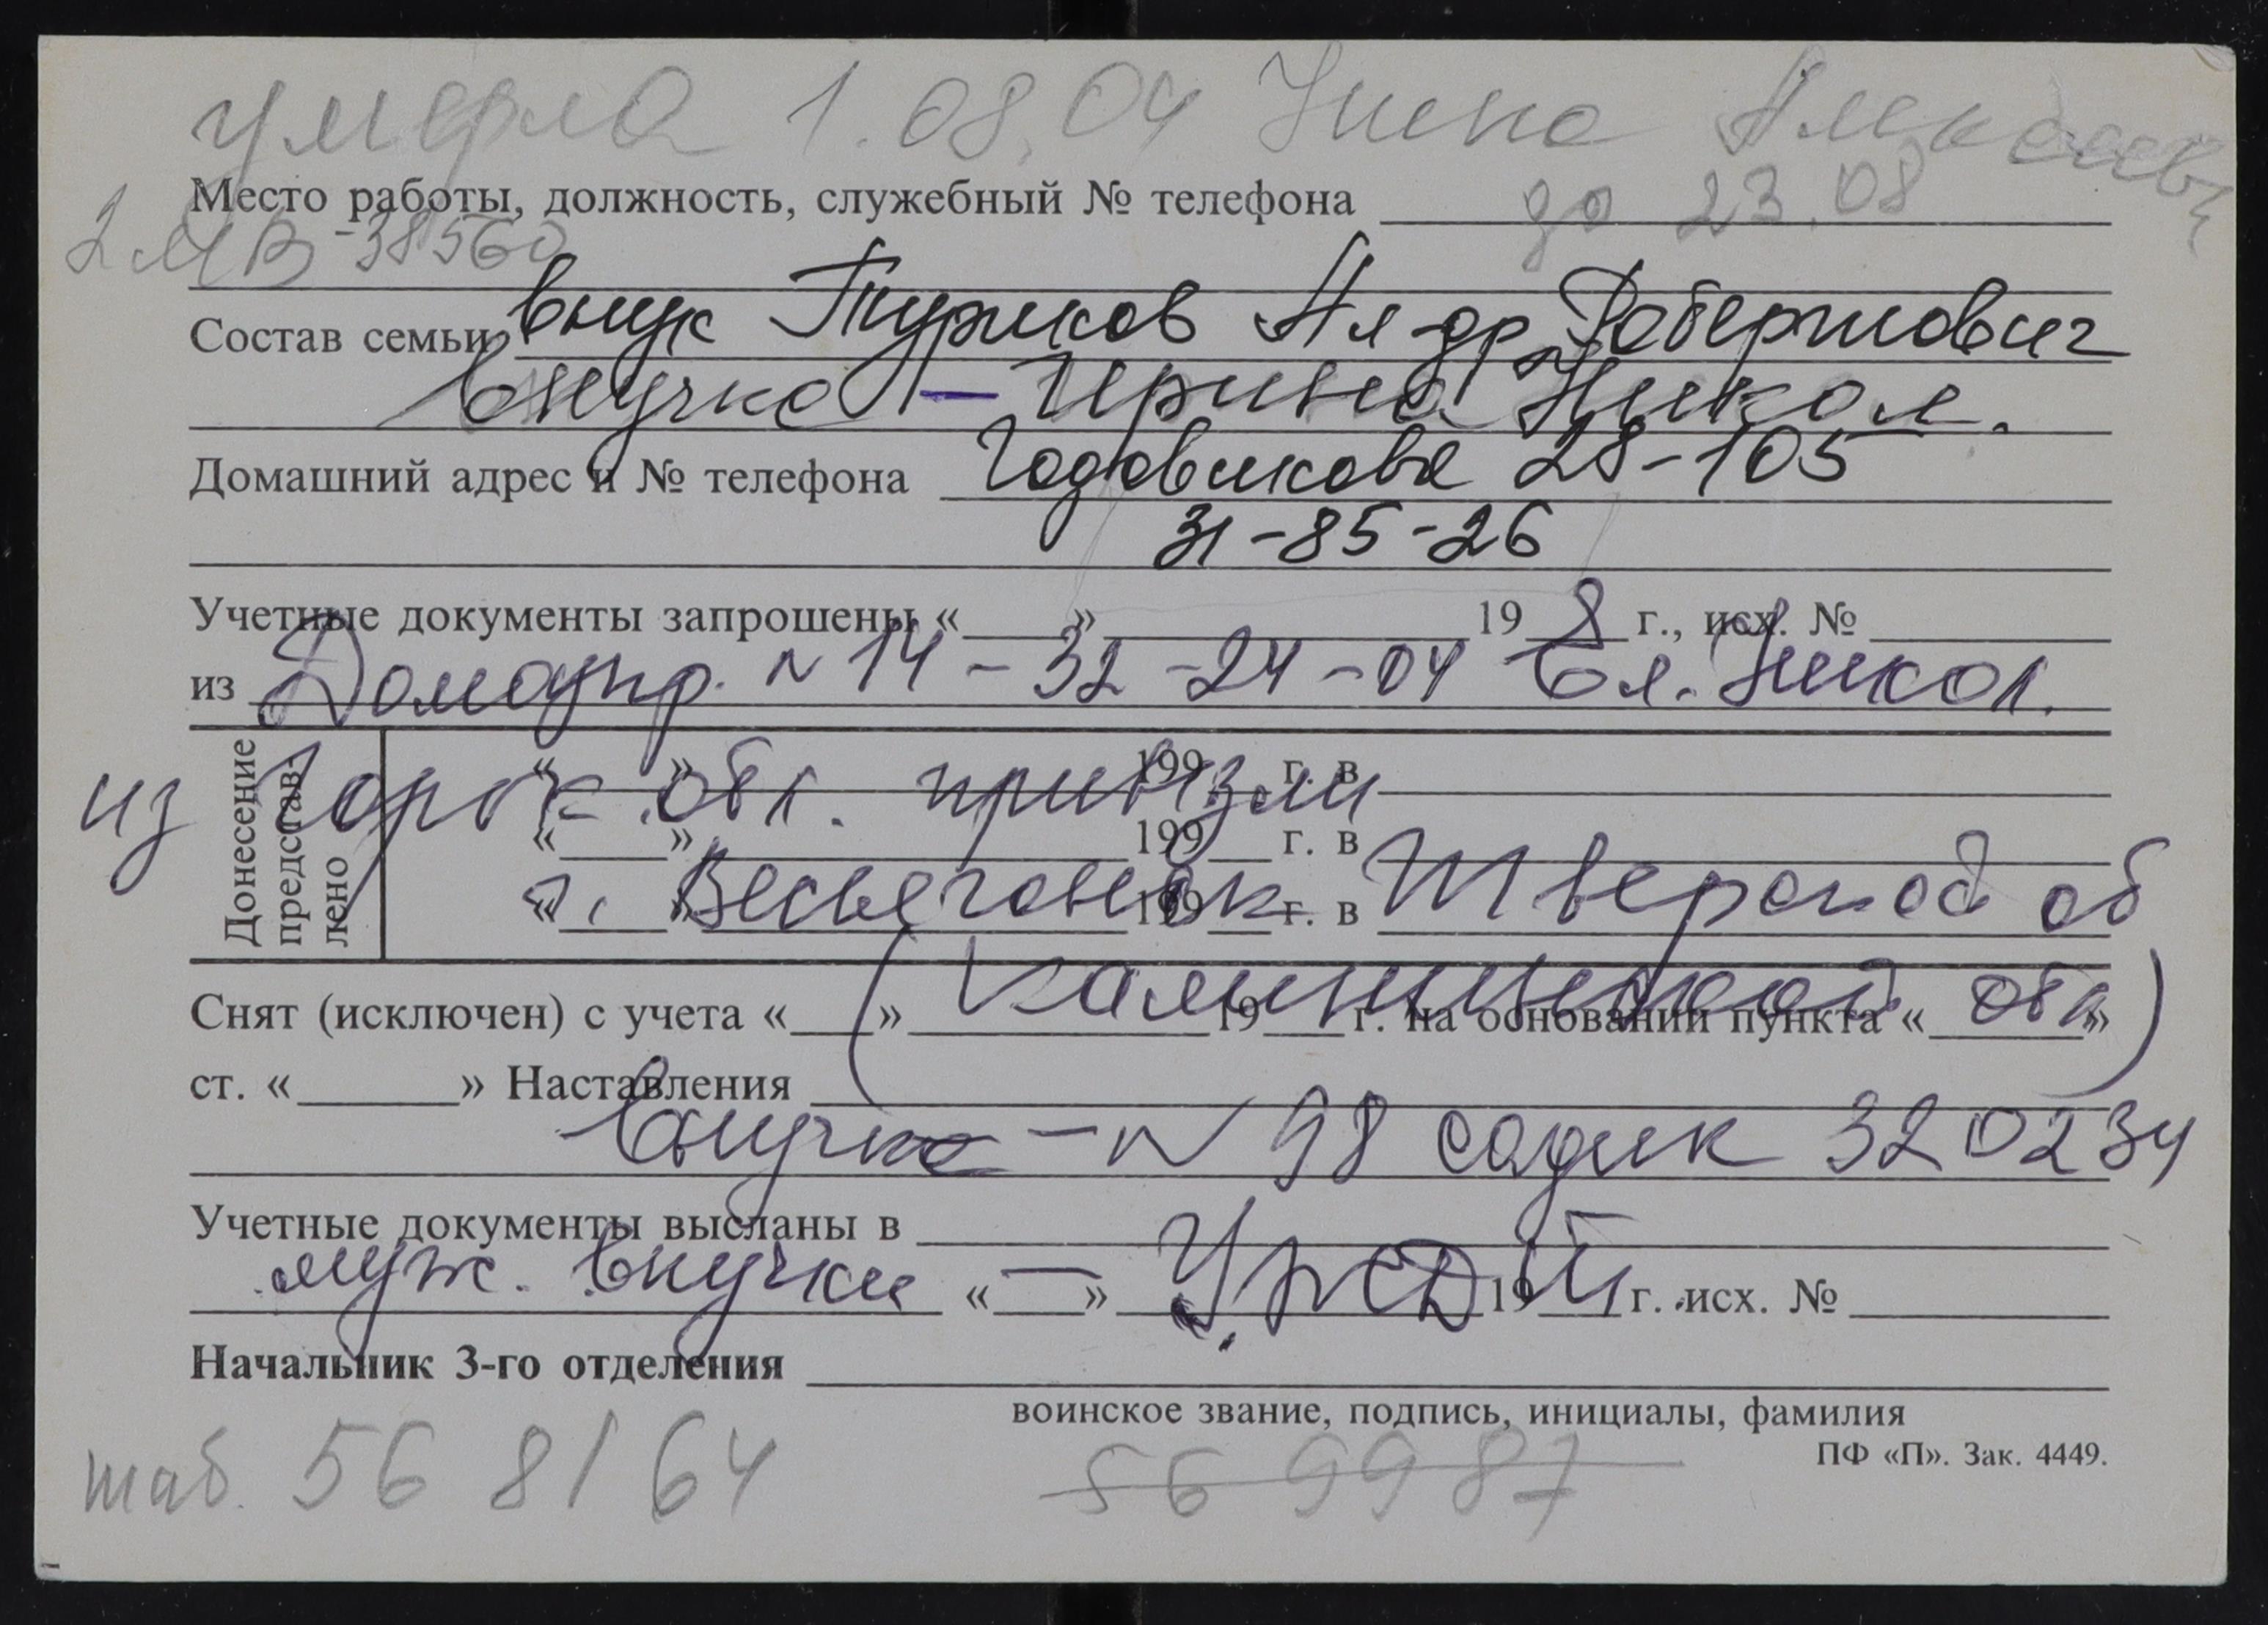 умерла 1.08.04 Нина Алексеевн
Место работы, должность, служебный № телефона до 23.08
2 МВ-38560
Состав семьи внук Туриков Ал-др Робертович
внучка — Ирина Никол.
Домашний адрес и № телефона Годовикова 28-105
31-85-26
Учетные документы запрошены « » 19 8 г., исх. №
из Домоупр. N 14 - 32-24-04 Ел. Никол.
Донесение представлено
« » 199 г. в
из Горьк. обл. привезли
« » 199 г. в
г. Весьегонск Тверской об
« » 199 г. в
(Калининской обл)
Снят (исключен) с учета « » 19 г. на основании пункта « »
ст. « » Наставления
внучка - N 98 садик 320234
Учетные документы высланы в
муж. внучки — УЖДТ
« » 19 г. исх. №
Начальник 3-го отделения
воинское звание, подпись, инициалы, фамилия
ПФ «П». Зак. 4449.
таб. 56 81 64 56 99 87